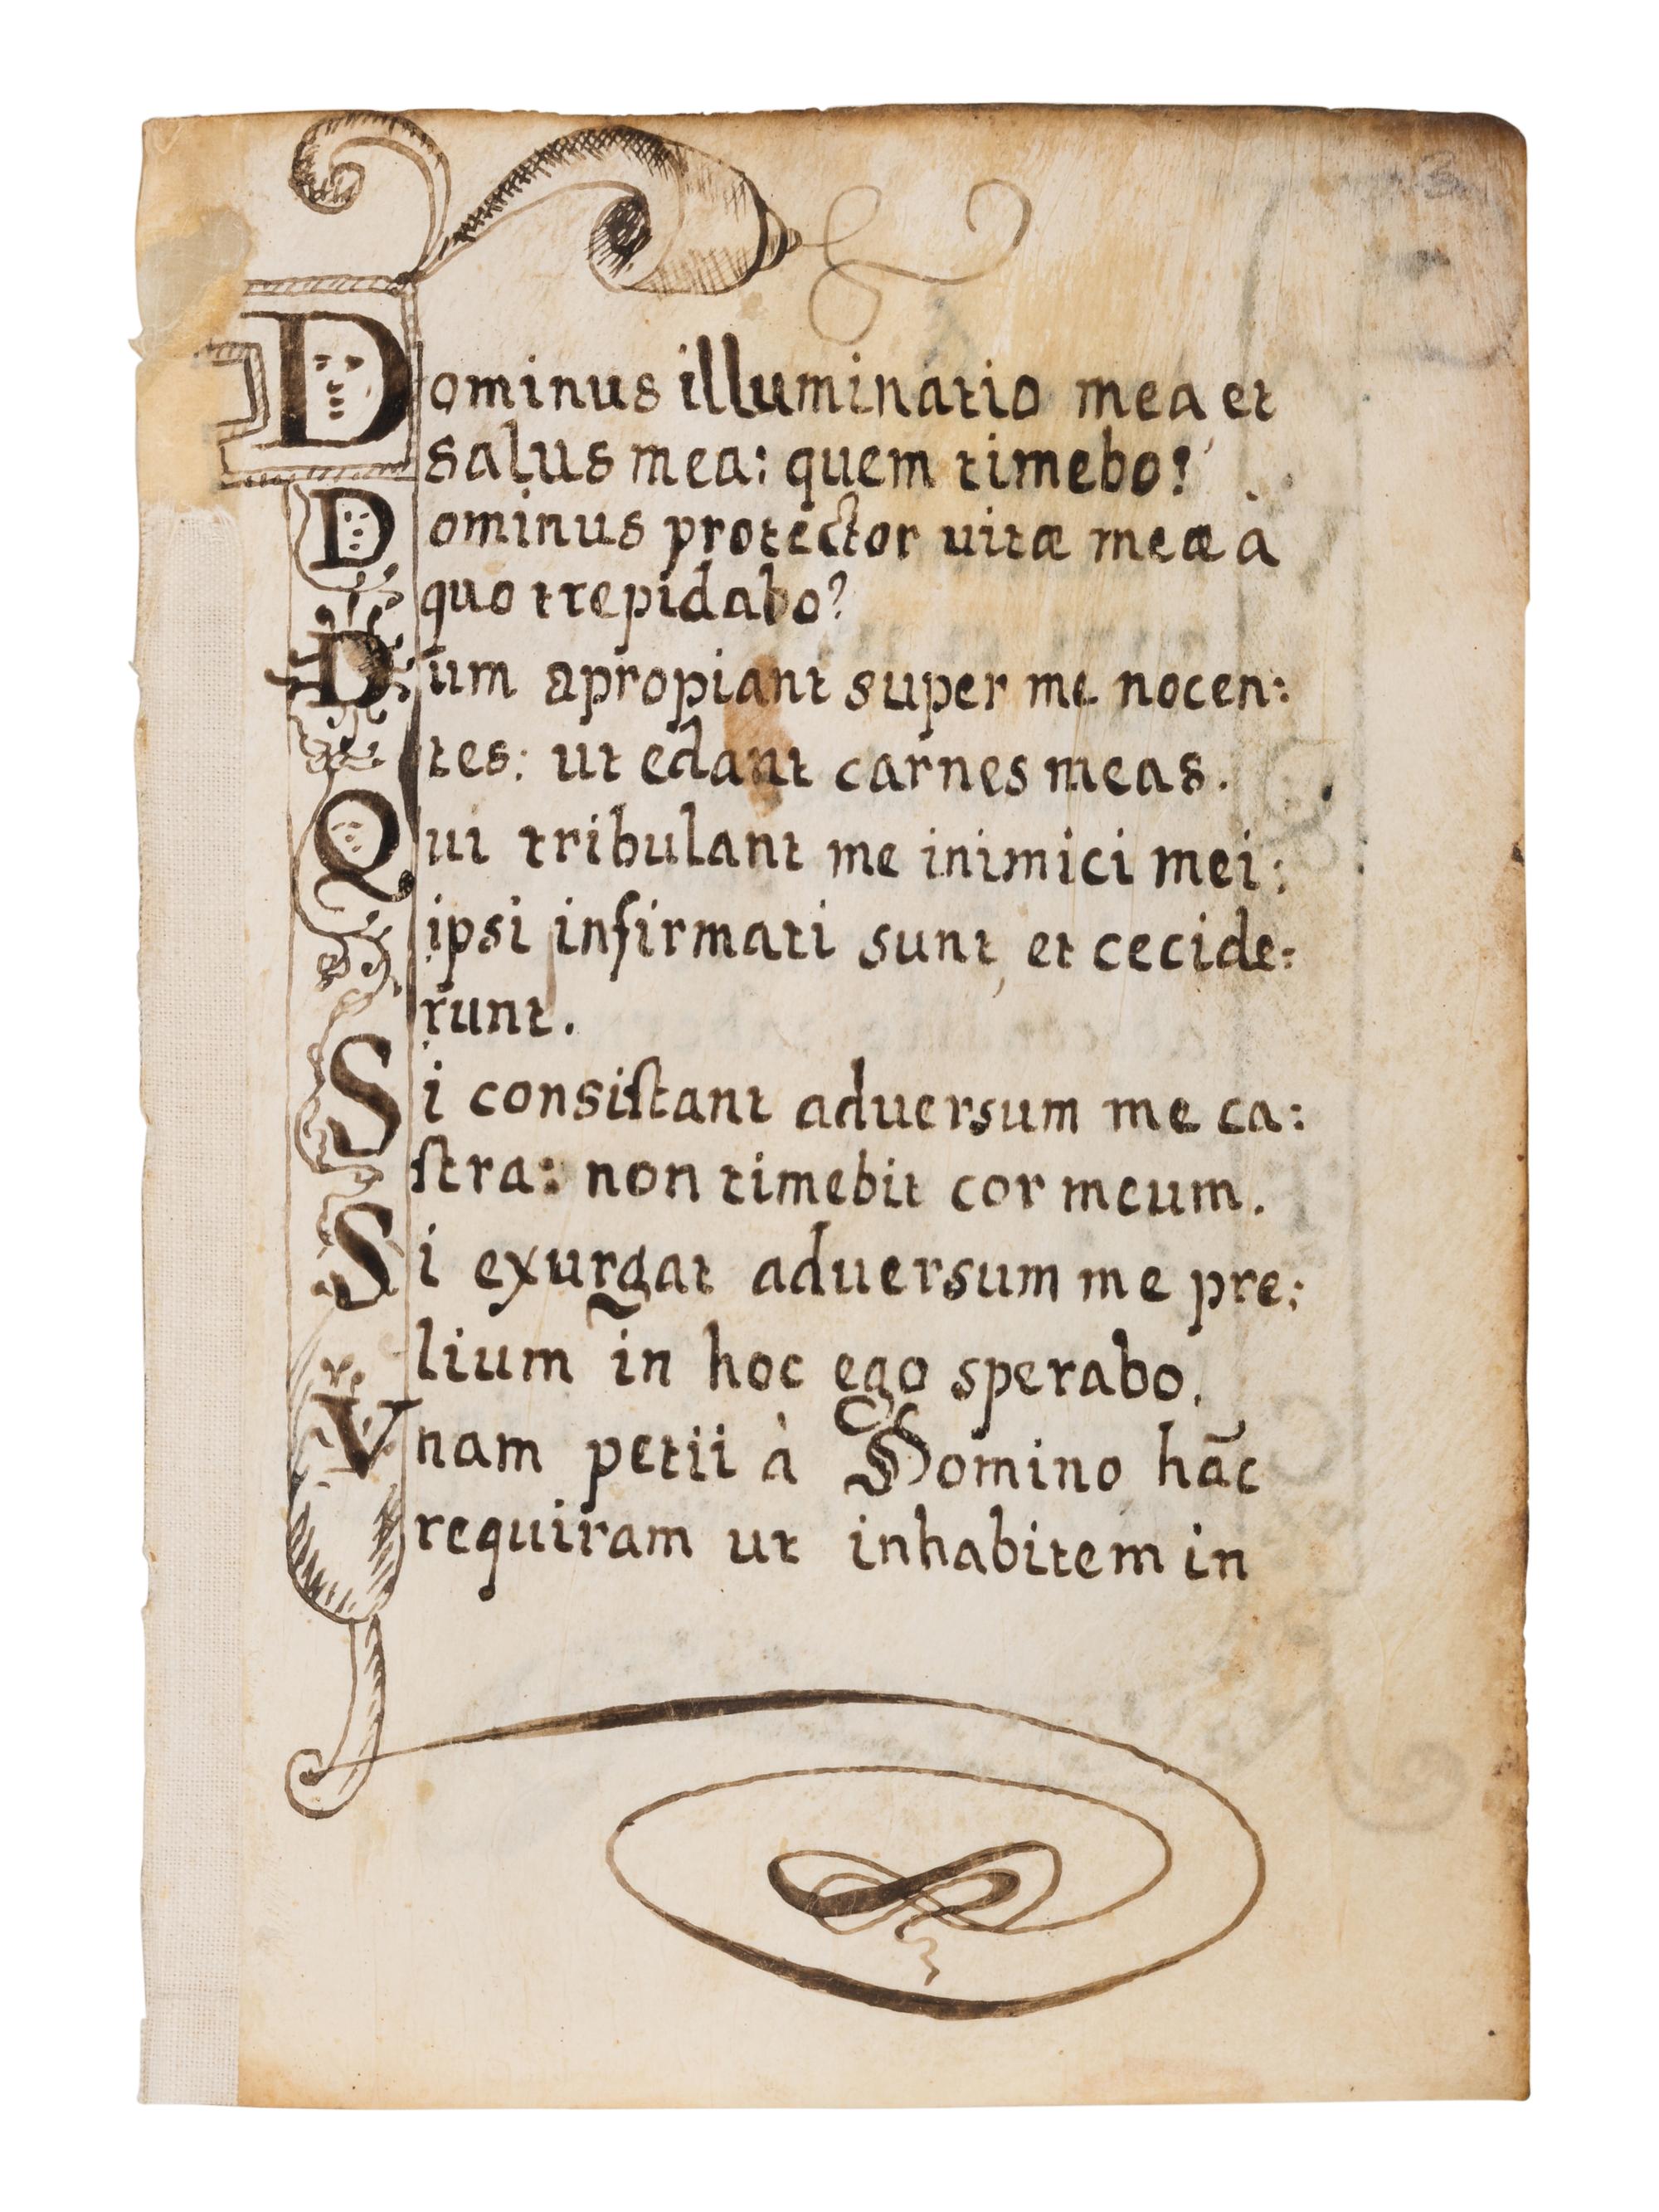 3
Dominus illuminatio mea et
salus mea: quem timebo?
Dominus protector uitæ meæ à
quo trepidabo?
Dum apropiant super me nocen:
tes: ut edant carnes meas.
Qui tribulant me inimici mei:
ipsi infirmati sunt, et cecide:
runt.
Si consistant aduersum me ca:
stra: non timebit cor meum.
Si exurgat aduersum me pre:
lium in hoc ego sperabo.
Vnam petii à Domino hāc
requiram ut inhabitem in